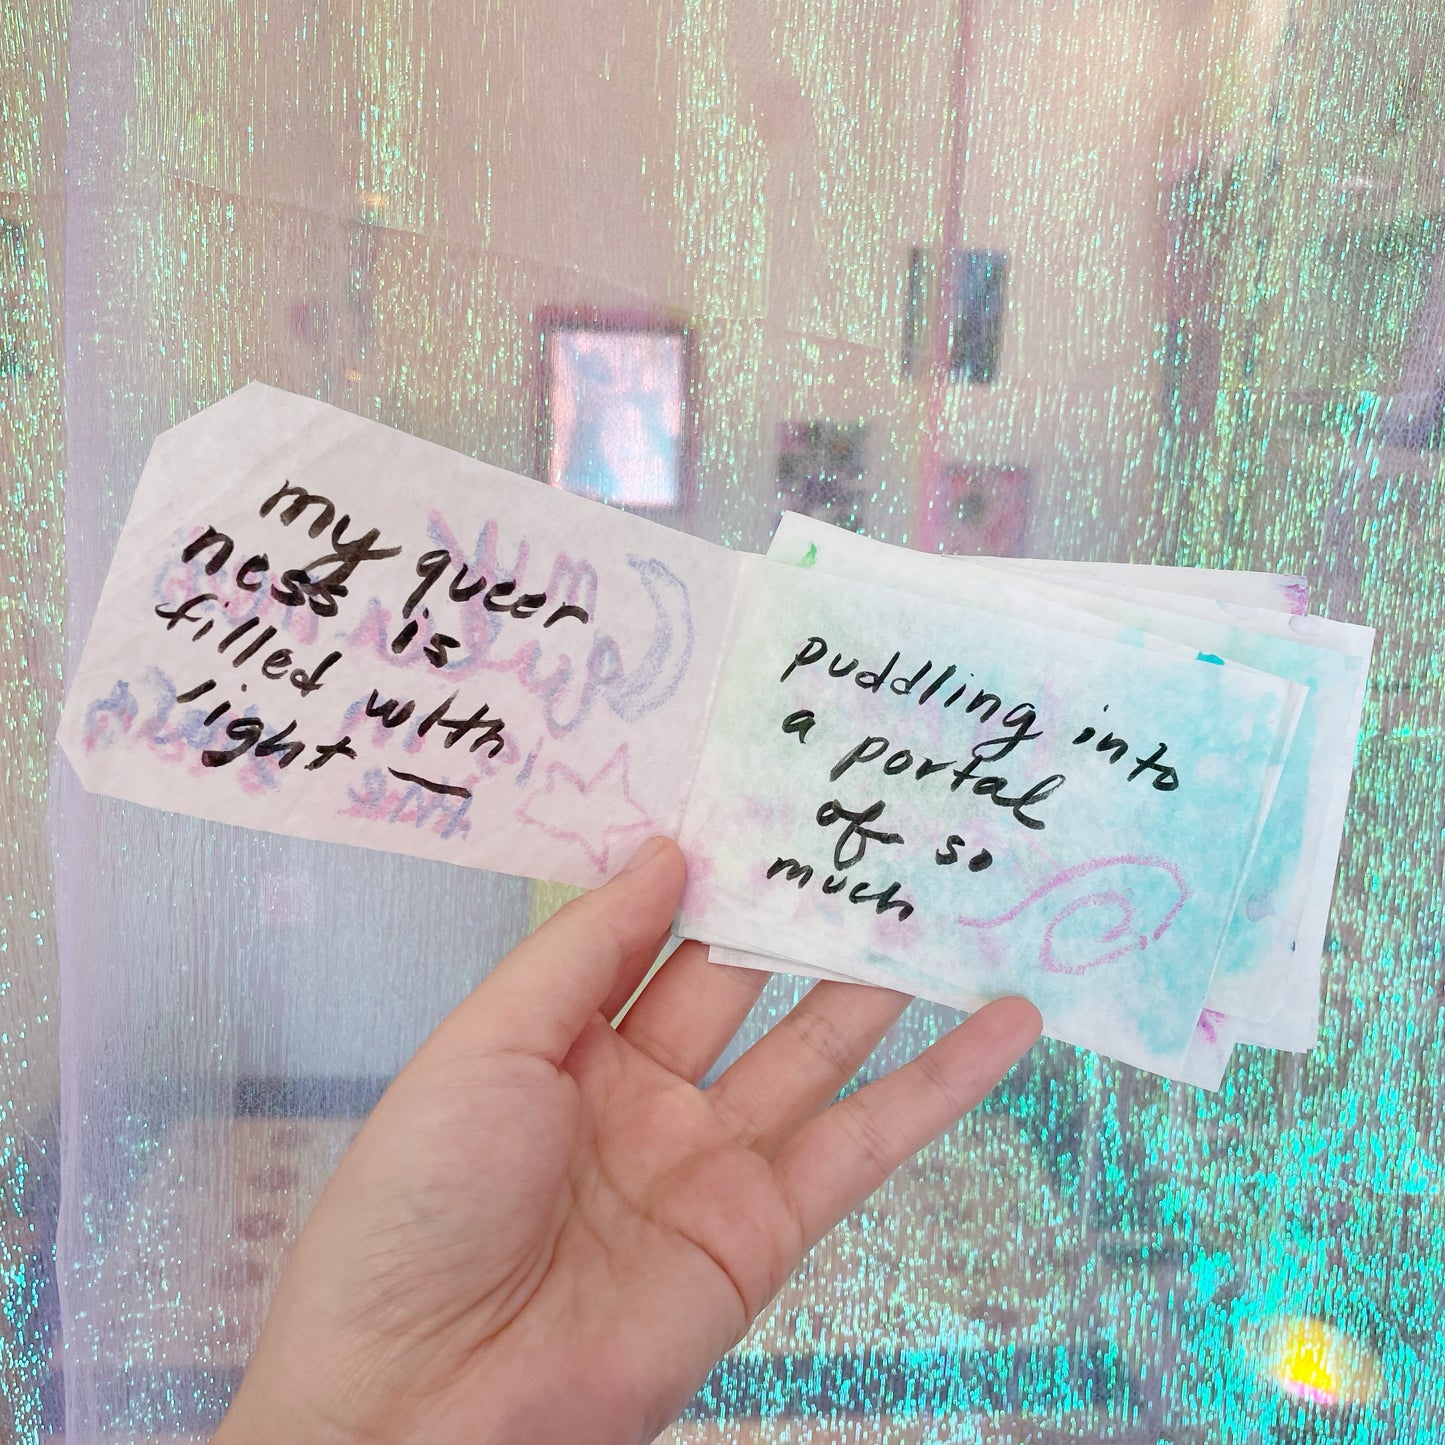 my queer
ness is
filled with
light —
puddling into
a portal
of so
much